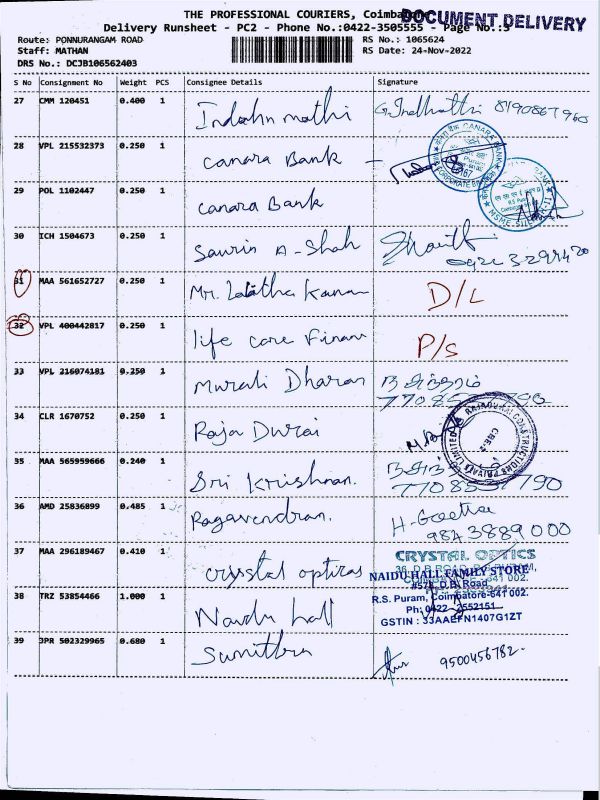 THE PROFESSIONAL COURIERS,
DOCUMENT DELIVERY
Delivery Runsheet - PC2 - Phone No.:0422-3505555 - Page No.:3
Route: PONNURANGAM ROAD
RS No.: 1065624
Staff: MATHAN
RS Date: 24-Nov-2022
DRS No.: DCJB106562403
S No Consignment No Weight PCS Consignee Details Signature
27 CMM 120451 0.400 1 8190867960
28 VPL 215532373 0.250 1 Canara Bank
29 POL 1102447 0.250 1 Canara Bank
30 ICH 1504673 0.250 1 A-Shah
31 MAA 561652727 0.250 1 Mr. D/L
32 VPL 400442817 0.250 1 life care P/s
33 VPL 216074181 0.250 1 Murali Dharan
34 CLR 1670752 0.250 1 Raja Durai
35 MAA 565959666 0.240 1 Sri Krishnan.
36 AMD 25836899 0.485 1 Ragavendran. H-Geetha
9843889000
37 MAA 296189467 0.410 1 crystal opticas CRYSTAL OPTICS
NAIDU HALL FAMILY STORE
38 TRZ 53854466 1.000 1 Naidu hall
R.S. Puram, Coimbatore-641 002.
Ph: 0422 - 2552151
GSTIN : 33AAEFN1407G1ZT
39 JPR 502329965 0.680 1 9500456782-